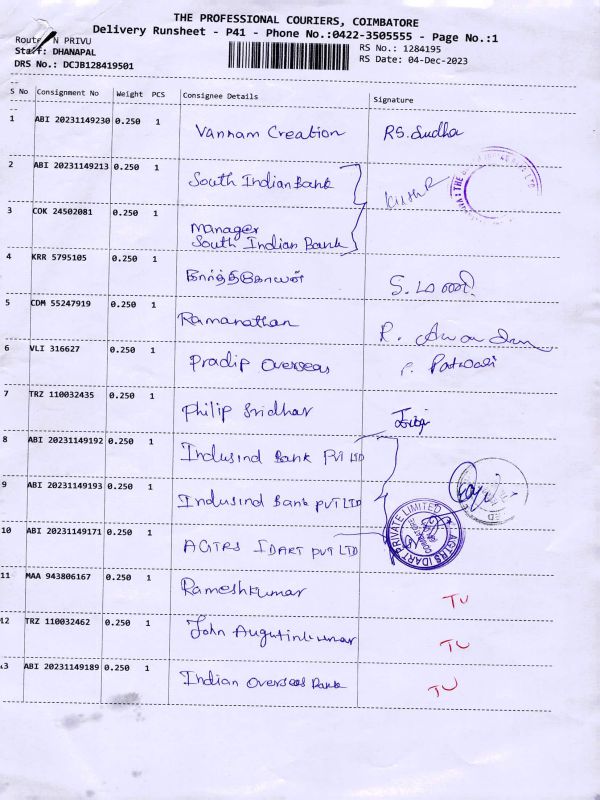 THE PROFESSIONAL COURIERS, COIMBATORE
Delivery Runsheet - P41 - Phone No.:0422-3505555 - Page No.:1
N PRIVU
Staff: DHANAPAL
DRS No.: DCJB128419501
RS No.: 1284195
RS Date: 04-Dec-2023
S No Consignment No Weight PCS Consignee Details Signature
1 ABI 20231149230 0.250 1 Vannam Creation RS. Sudha
2 ABI 20231149213 0.250 1 South Indian Bank
3 COK 24502081 0.250 1 Manager
South Indian Bank
4 KRR 5795105 0.250 1 கார்த்திகேயன் S.
5 CDM 55247919 1 Ramanathan R.
6 VLI 316627 0.250 1 Pradip Overseas
7 TRZ 110032435 0.250 1 Philip Sridhar
8 ABI 20231149192 0.250 1 Indusind Bank PVT LTD
9 ABI 20231149193 0.250 1 Indusind Bank PVT LTD
10 ABI 20231149171 0.250 1 AGTRS IDART PVT LTD
AGTRS IDART PRIVATE LIMITED
11 MAA 943806167 0.250 1 Rameshkumar TU
12 TRZ 110032462 0.250 1 John TU
13 ABI 20231149189 0.250 1 Indian Overseas Bank TU